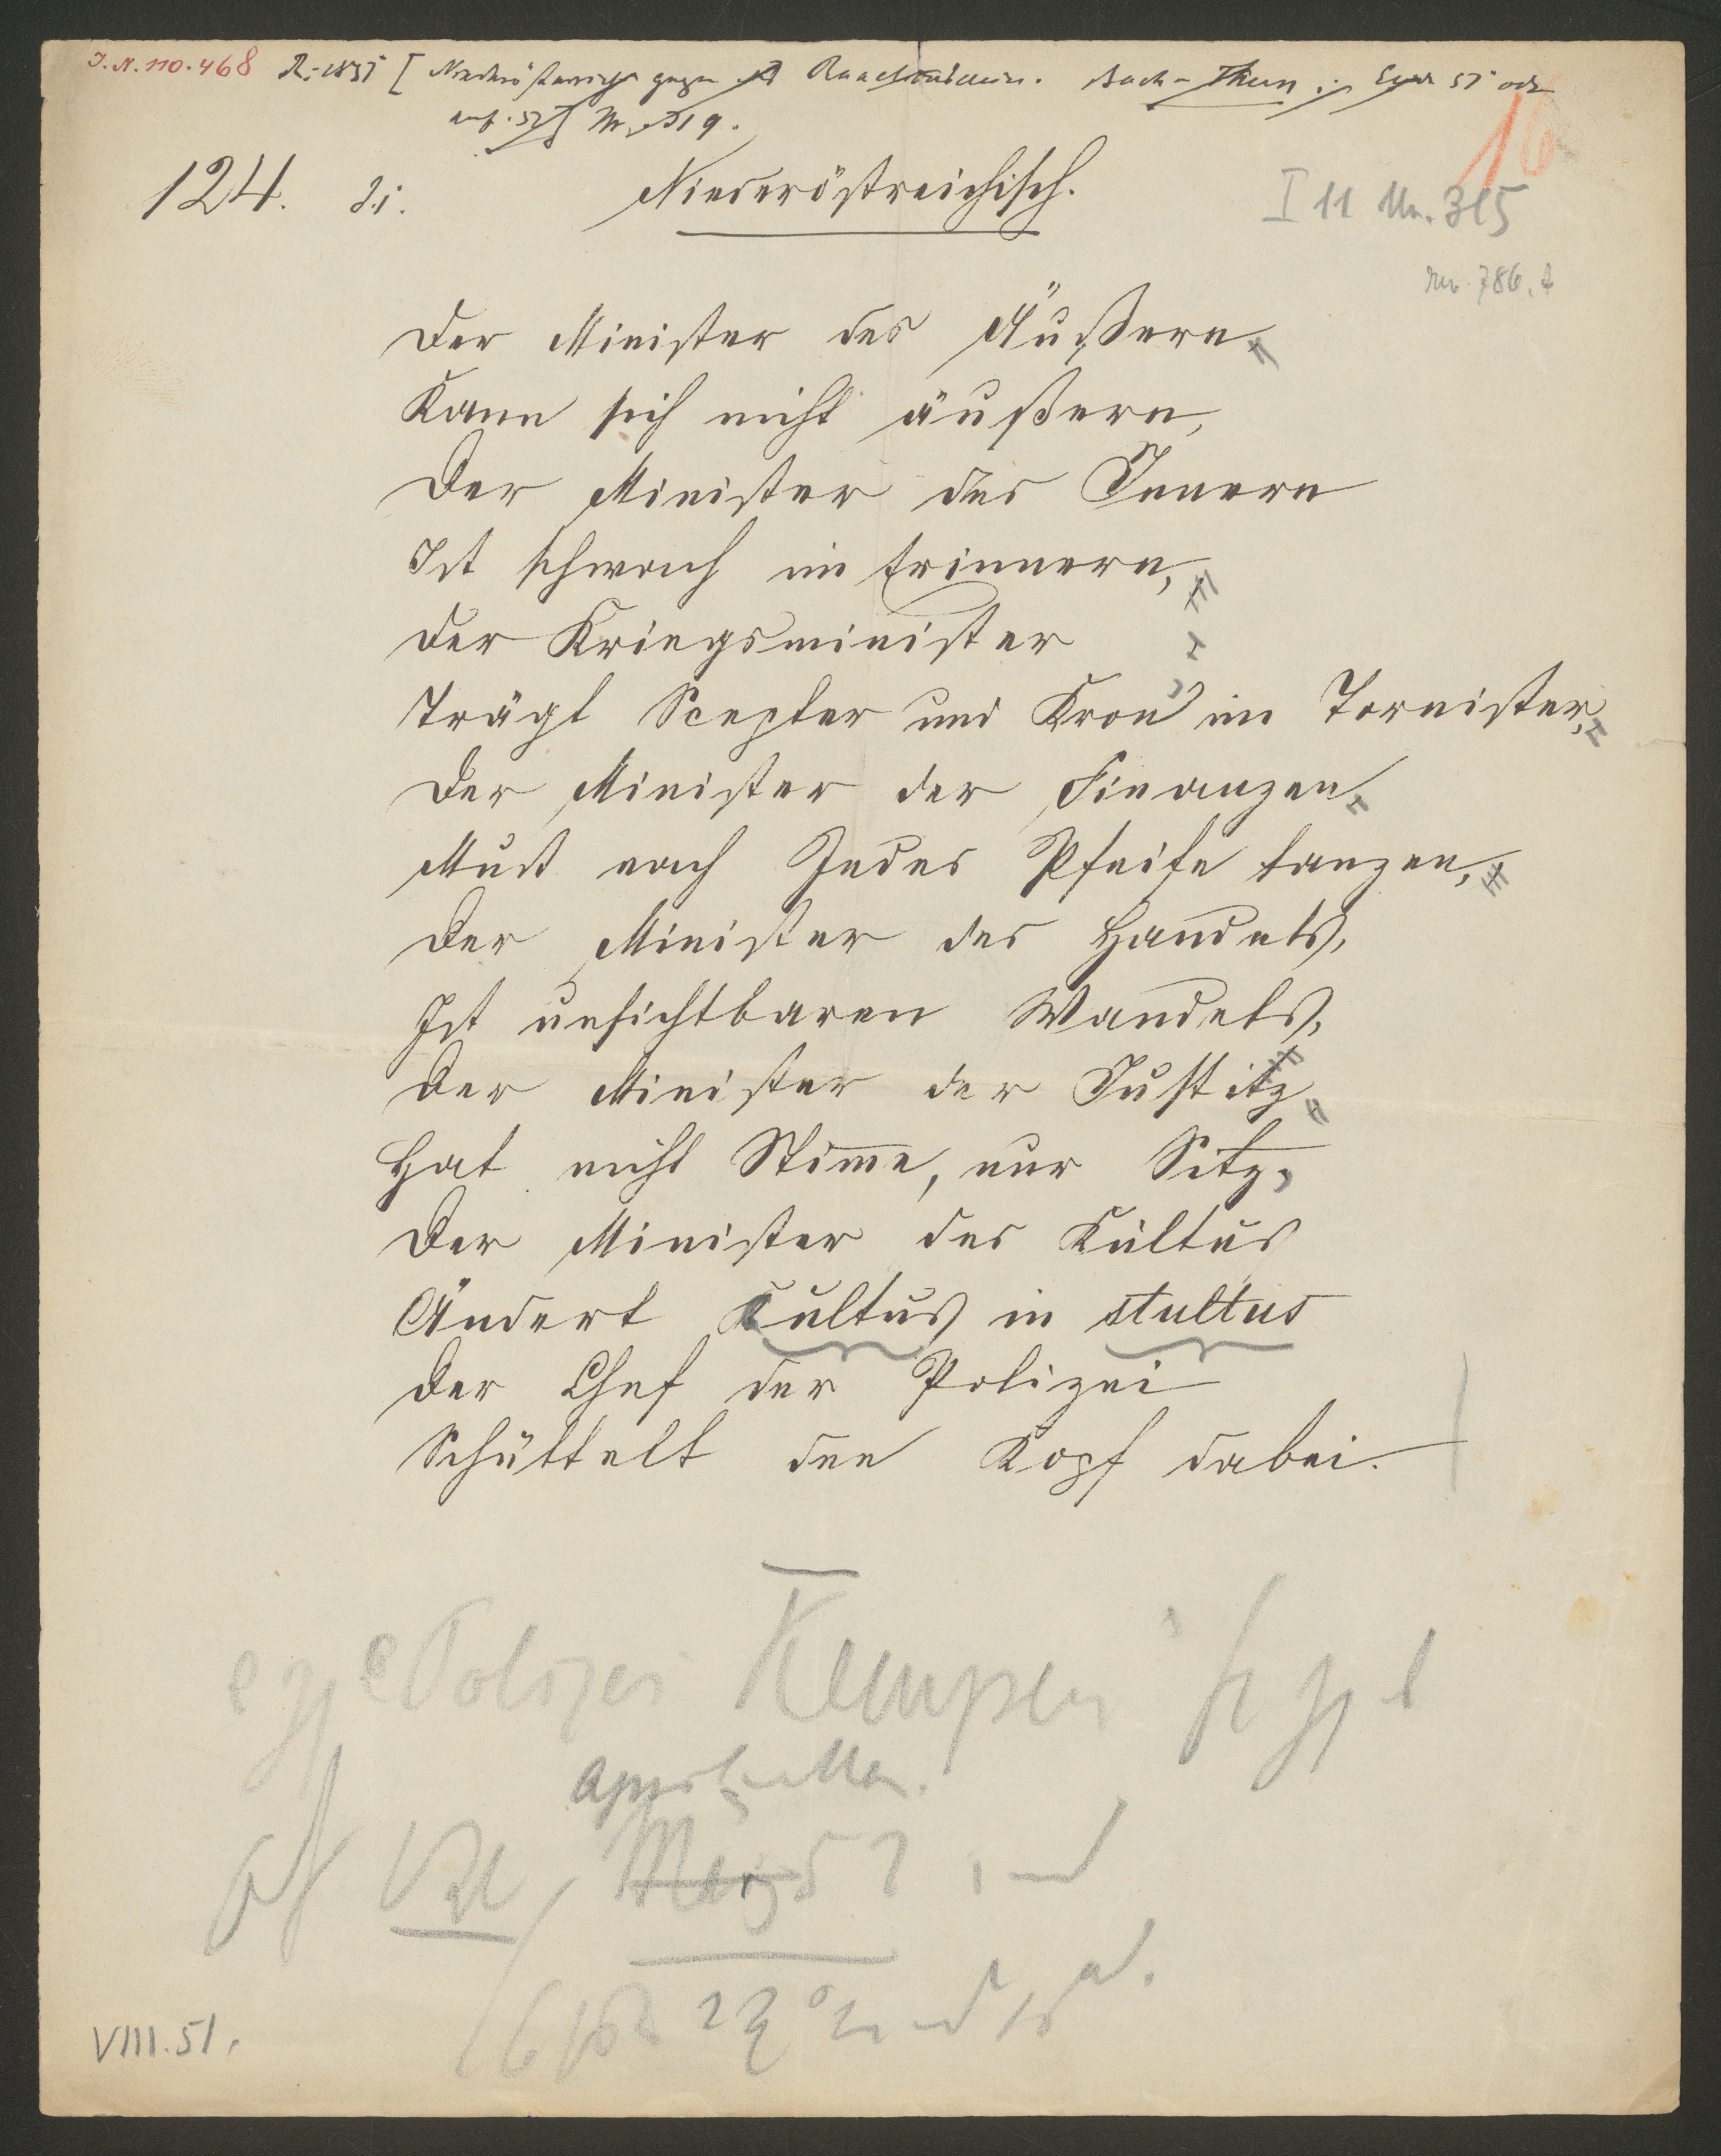 J.N. 110.468
124.
Niederöstreichisch.
16
I 11 Nr. 315
786.
Der Minister des Äußern
Kann sich nicht äußern,
Der Minister des Innern
Ist schwach im Erinnern,
Der Kriegsminister
Trägt Scepter und Kron' im Tornister,
Der Minister der Finanzen
Muß nach Jedes Pfeife tanzen,
Der Minister des Handels,
Ist unsichtbaren Wandels,
Der Minister der Justitz
Hat nicht Stim̅e, nur Sitz,
Der Minister des Kultus
Ändert Kultus in stultus
Der Chef der Polizei
Schüttelt den Kopf dabei.
Polizei Kempen
VIII.51.